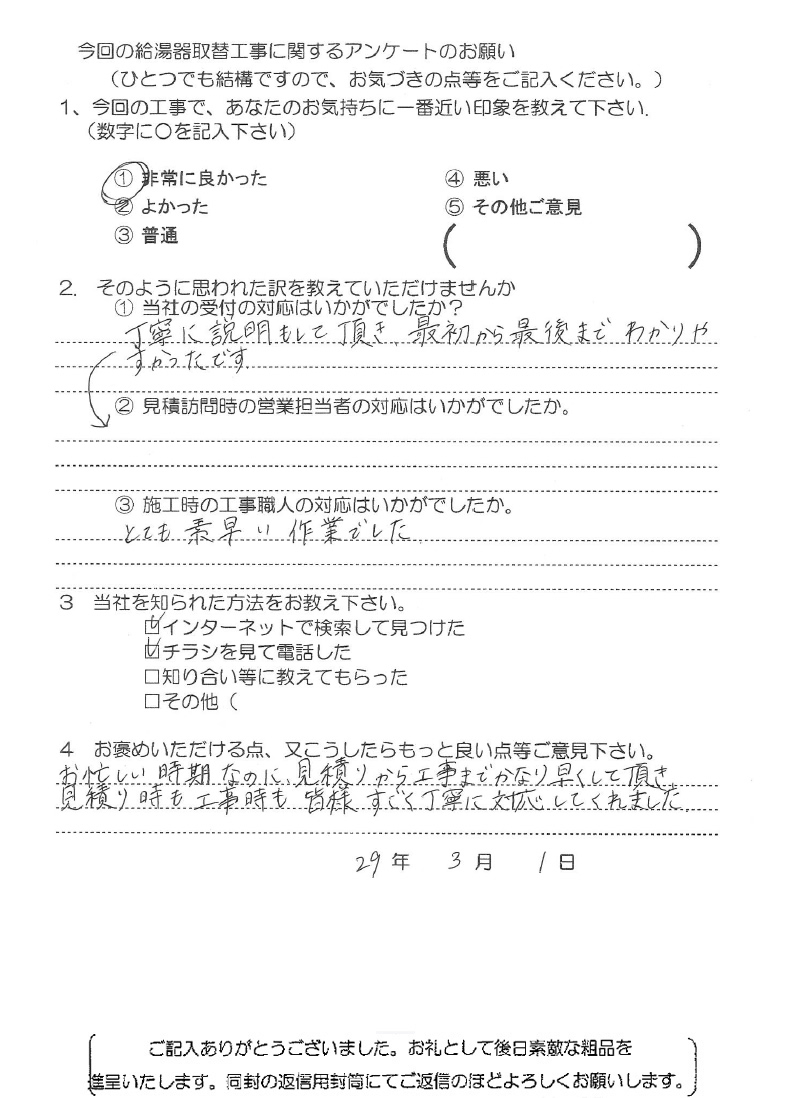 今回の給湯器取替工事に関するアンケートのお願い
（ひとつでも結構ですので、お気づきの点等をご記入ください。）
1、今回の工事で、あなたのお気持ちに一番近い印象を教えて下さい.
（数字に〇を記入下さい）
① 非常に良かった
② よかった
③ 普通
④ 悪い
⑤ その他ご意見
（ ）
2. そのように思われた訳を教えていただけませんか
① 当社の受付の対応はいかがでしたか？
丁寧に説明もして頂き、最初から最後まで わかりや
すかったです
② 見積訪問時の営業担当者の対応はいかがでしたか。
③ 施工時の工事職人の対応はいかがでしたか。
とても素早い作業でした。
3 当社を知られた方法をお教え下さい。
☑インターネットで検索して見つけた
☑チラシを見て電話した
□知り合い等に教えてもらった
□その他（
4 お褒めいただける点、又こうしたらもっと良い点等ご意見下さい。
お忙しい時期なのに、見積りから工事までかなり早くして頂き、
見積り時も工事時も皆様すごく丁寧に対応してくれました。
29年 3月 1日
ご記入ありがとうございました。お礼として後日素敵な粗品を
進呈いたします。同封の返信用封筒にてご返信のほどよろしくお願いします。